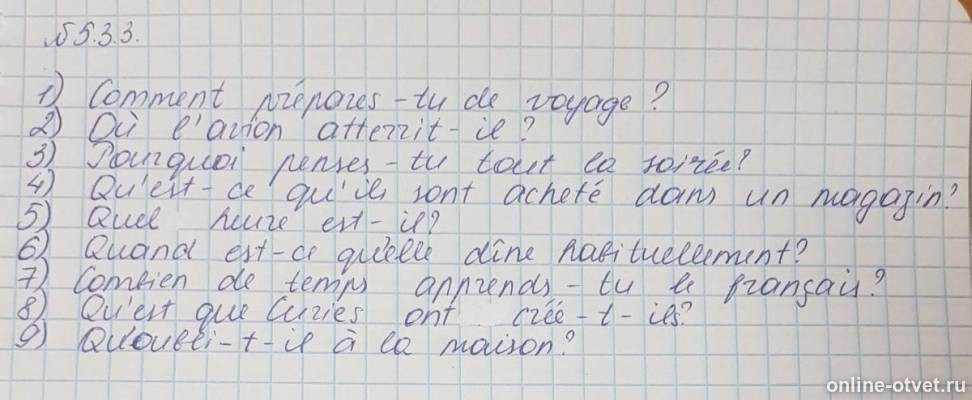 №5.3.3.
1) Comment prépares-tu de voyage?
2) Où l'avion atterrit-il?
3) Pourquoi penses-tu tout la soirée?
4) Qu'est-ce qu'ils sont acheté dans un magazin?
5) Quel heure est-il?
6) Quand est-ce qu'elle dîne habituellement?
7) Combien de temps apprends-tu le français?
8) Qu'est que Curies ont créé-t-ils?
9) Qu'oubli-t-il à la maison?
online-otvet.ru